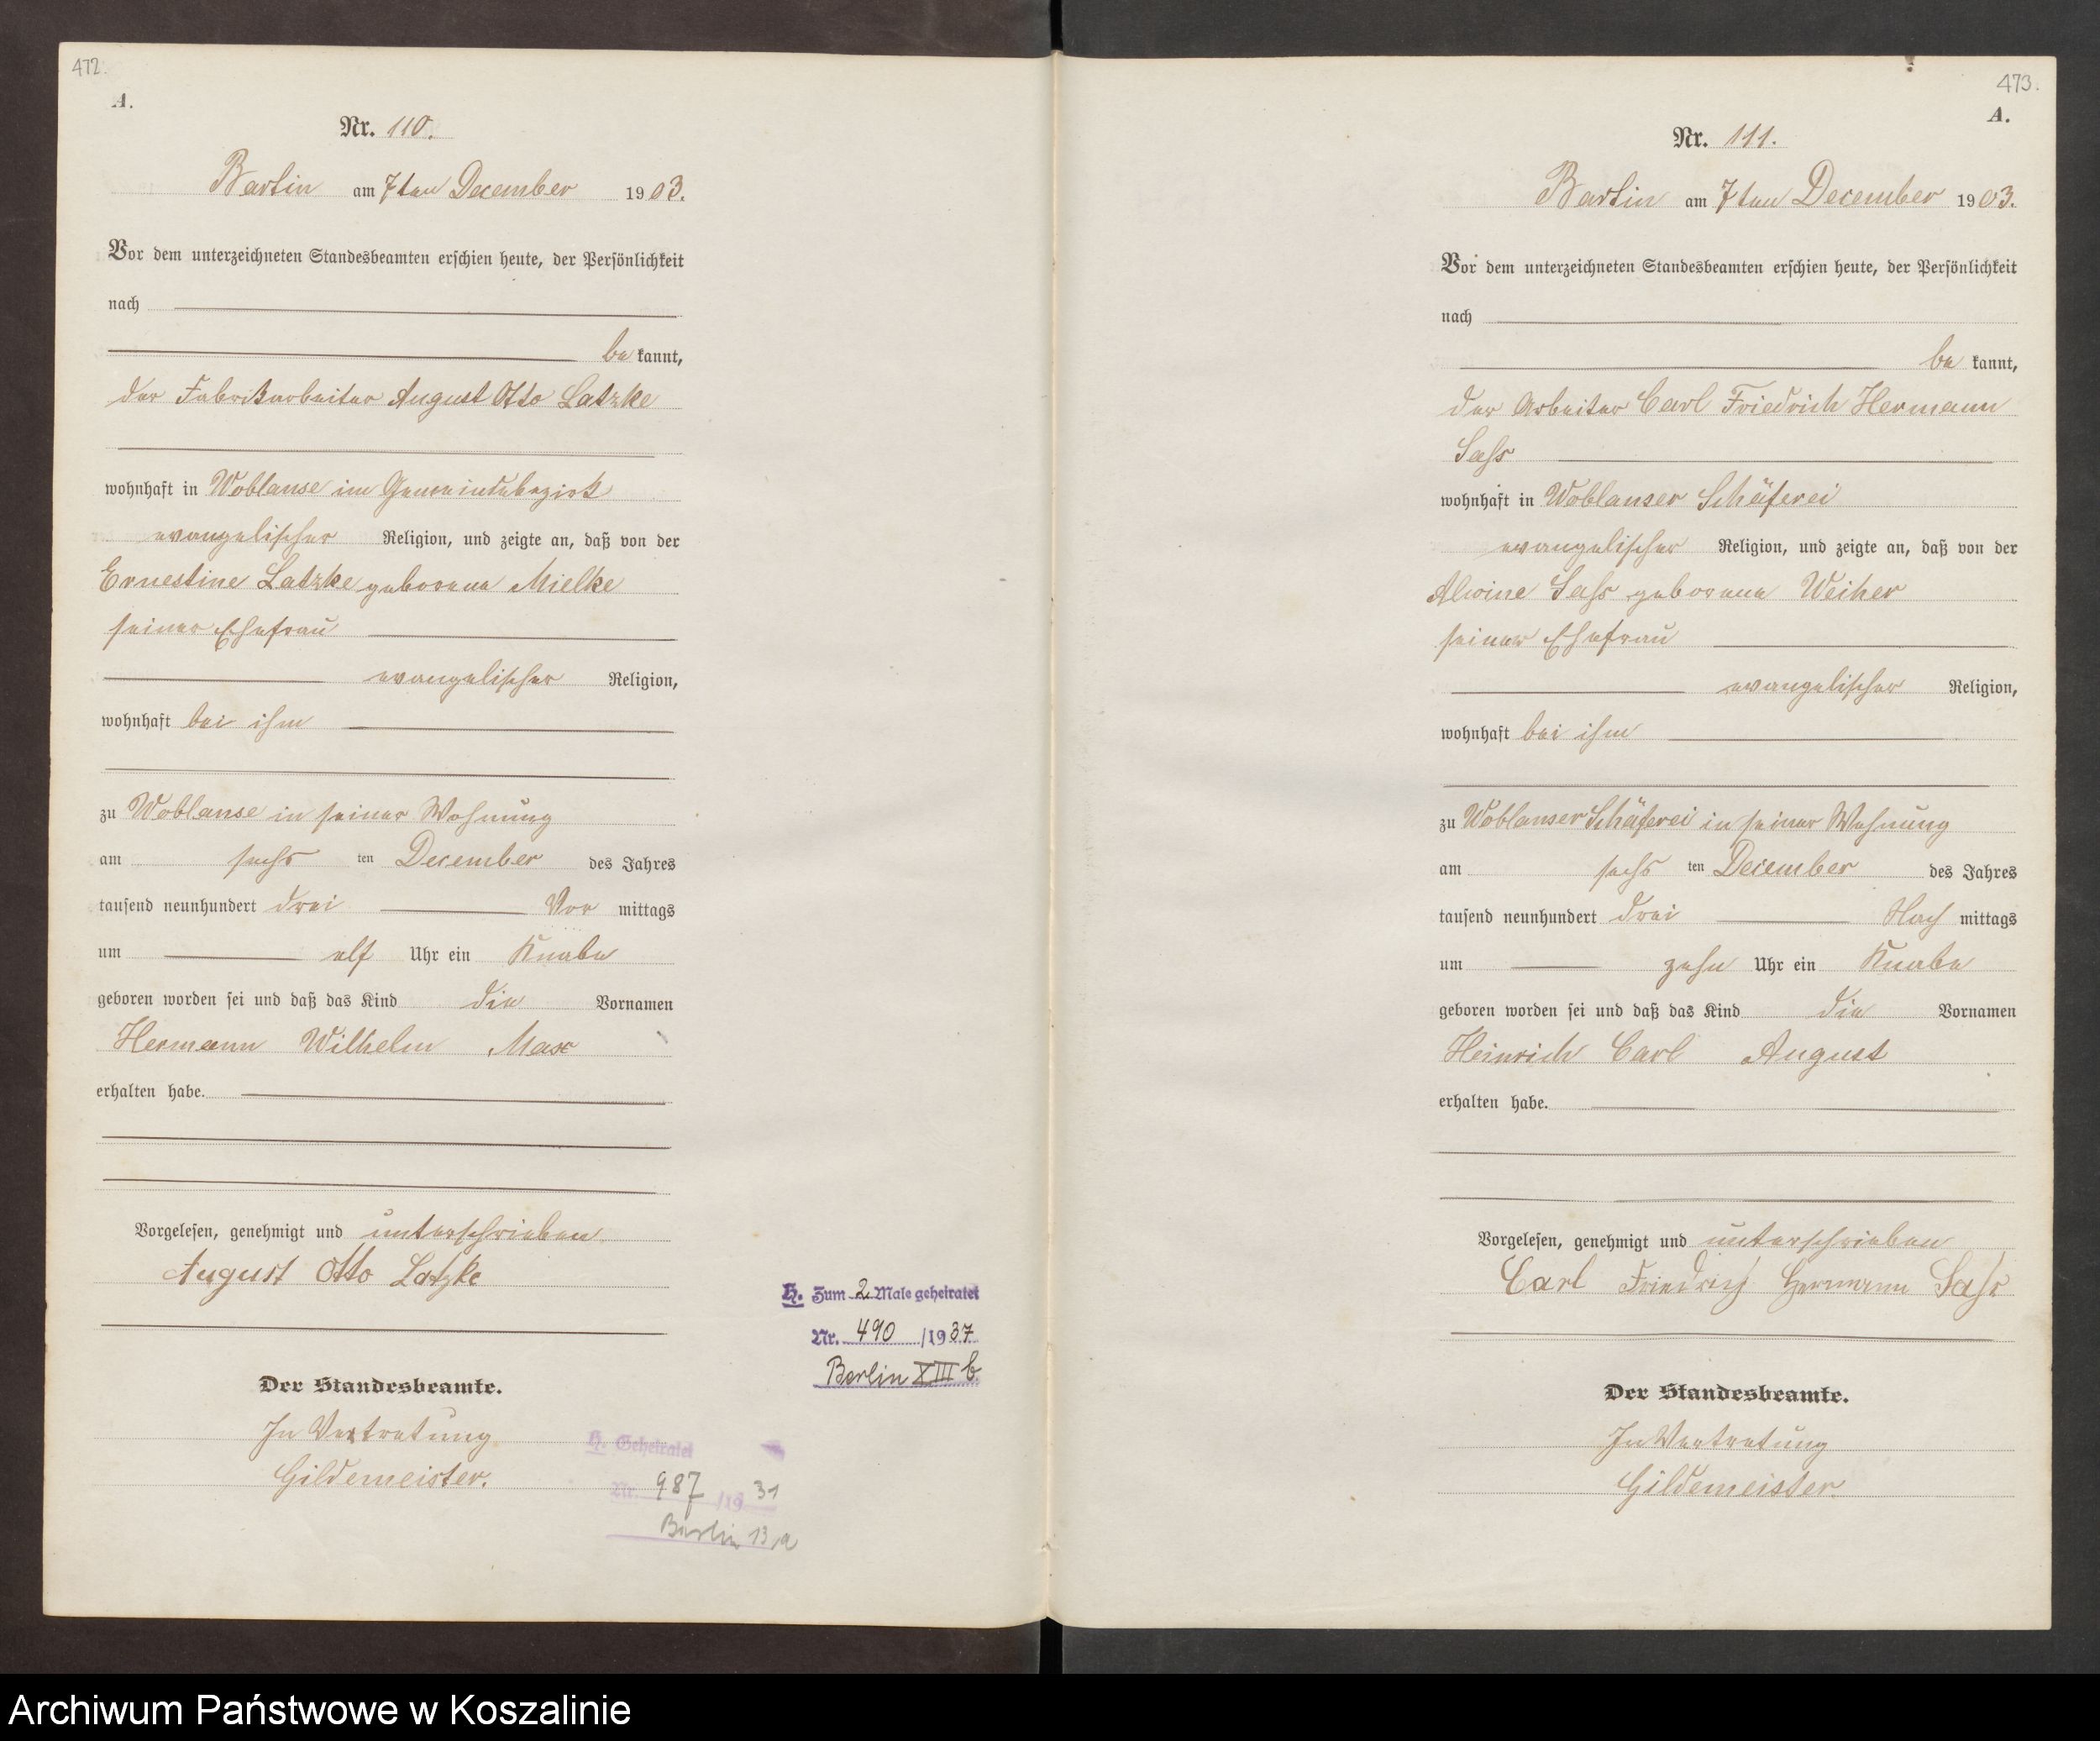 472.
A.
Nr. 110.
Bartin am 7ten December 1903.
Vor dem unterzeichneten Standesbeamten erschien heute, der Persönlichkeit
nach
be kannt,
der Fabrikarbeiter August Otto Latzke
wohnhaft in Woblanse im Gemeindebezirk
evangelischer Religion, und zeigte an, daß von der
Ernestine Latzke geborene Mielke
seiner Ehefrau
evangelischer Religion,
wohnhaft bei ihm
zu Woblanse in seiner Wohnung
am sechs ten December des Jahres
tausend neunhundert drei Vor mittags
um elf Uhr ein Knabe
geboren worden sei und daß das Kind die Vornamen
Hermann Wilhelm Max
erhalten habe.
Vorgelesen, genehmigt und unterschrieben
August Otto Latzke
Der Standesbeamte.
In Vertretung
Gildemeister.
H. Zum 2 Male geheiratet
Nr. 490 /1937
Berlin XIII b.
H. Geheiratet
Nr. 987 /19 31
Berlin 13 a
473.
A.
Nr. 111.
Bartin am 7ten December 1903.
Vor dem unterzeichneten Standesbeamten erschien heute, der Persönlichkeit
nach
be kannt,
der Arbeiter Carl Friedrich Hermann
Sass
wohnhaft in Woblanser Schäferei
evangelischer Religion, und zeigte an, daß von der
Alwine Sass geborene Weiher
seiner Ehefrau
evangelischer Religion,
wohnhaft bei ihm
zu Woblanser Schäferei in seiner Wohnung
am sechs ten December des Jahres
tausend neunhundert drei Nach mittags
um zehn Uhr ein Knabe
geboren worden sei und daß das Kind die Vornamen
Heinrich Carl August
erhalten habe.
Vorgelesen, genehmigt und unterschrieben
Carl Friedrich Hermann Sass
Der Standesbeamte.
In Vertretung
Gildemeister
Archiwum Państwowe w Koszalinie